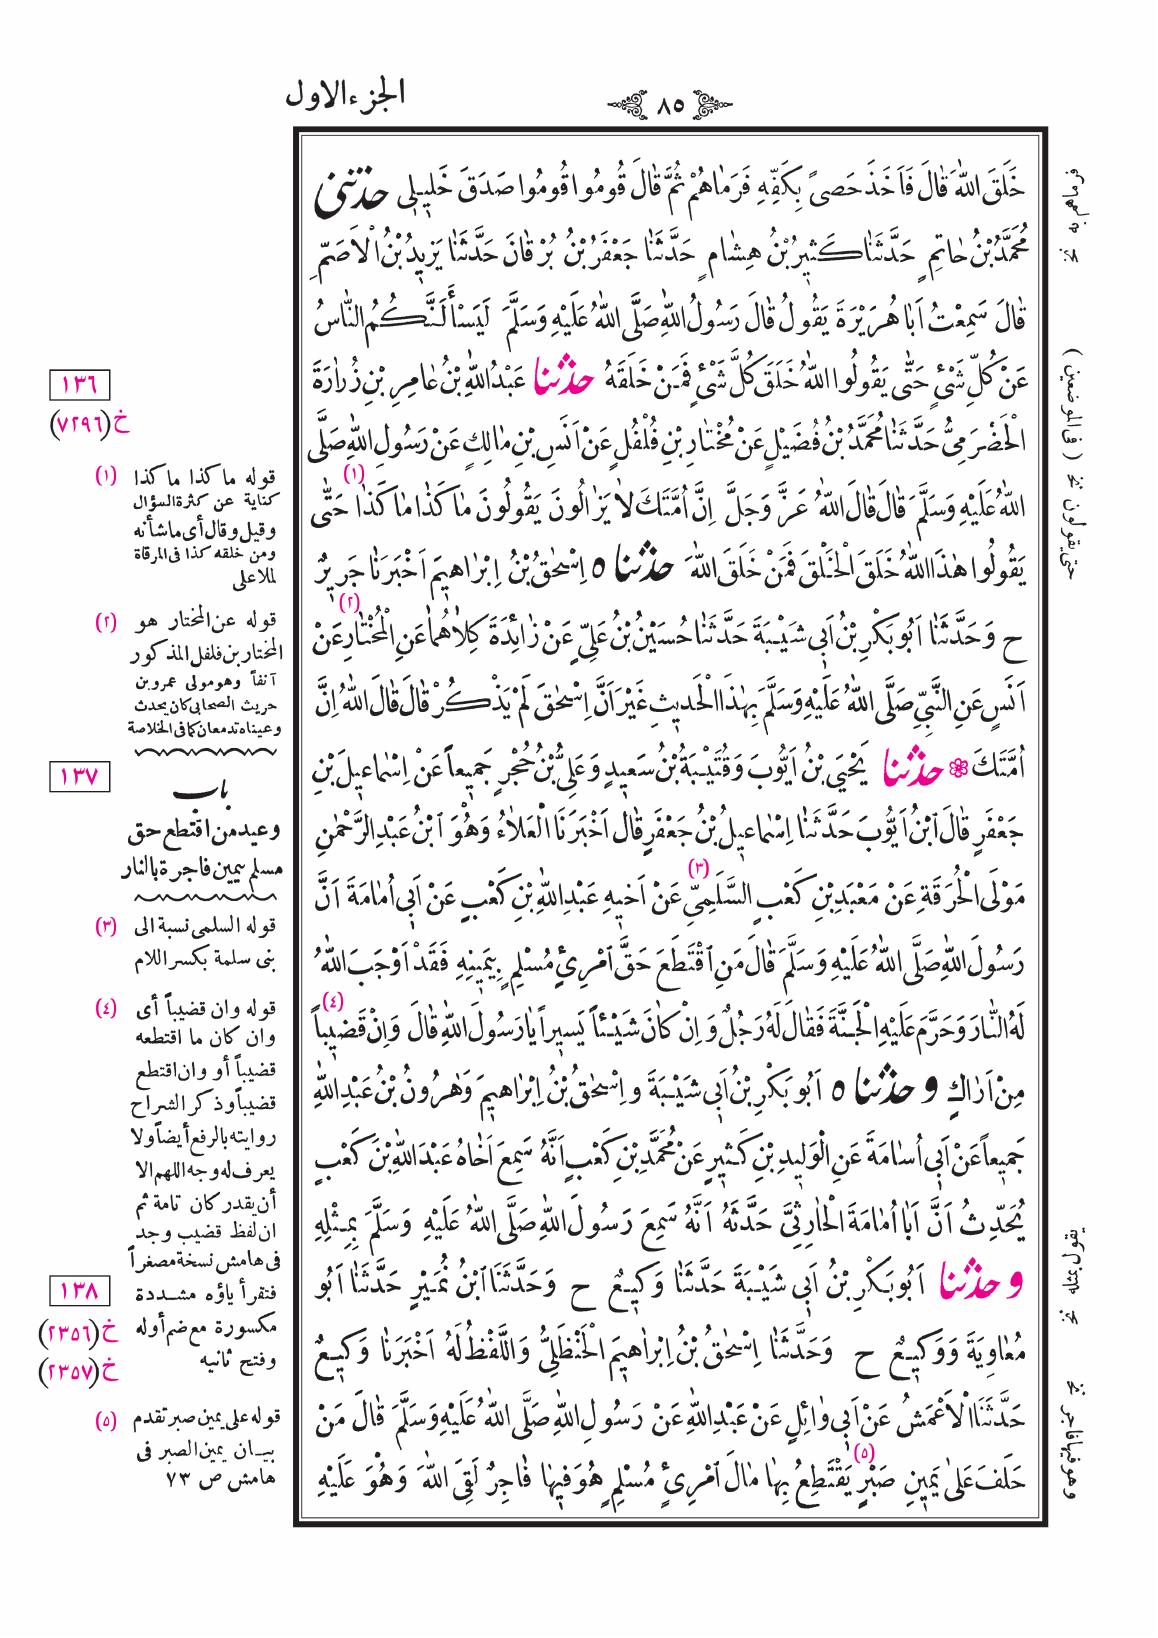 الجزء الاول
٨٥
خَلَقَ اللّٰهَ قَالَ فَاَخَذَ حَصىً بِكَفِّهِ فَرَمَاهُمْ ثُمَّ قَالَ قُومُوا قُومُوا صَدَقَ خَلِيلِى حدثنى
مُحَمَّدُ بْنُ حَاتِمٍ حَدَّثَنَا كَثِيرُ بْنُ هِشَامٍ حَدَّثَنَا جَعْفَرُ بْنُ بُرْقَانَ حَدَّثَنَا يَزِيدُ بْنُ الْاَصَمِّ
قَالَ سَمِعْتُ اَبَا هُرَيْرَةَ يَقُولُ قَالَ رَسُولُ اللّٰهِ صَلَّى اللّٰهُ عَلَيْهِ وَسَلَّمَ لَيَسْأَلَنَّكُمُ النَّاسُ
عَنْ كُلِّ شَىْءٍ حَتّٰى يَقُولُوا اللّٰهُ خَلَقَ كُلَّ شَىْءٍ فَمَنْ خَلَقَهُ حدثنا عَبْدُ اللّٰهِ بْنُ عَامِرِ بْنِ زُرَارَةَ
الْحَضْرَمِىُّ حَدَّثَنَا مُحَمَّدُ بْنُ فُضَيْلٍ عَنْ مُخْتَارِ بْنِ فُلْفُلٍ عَنْ اَنَسِ بْنِ مَالِكٍ عَنْ رَسُولِ اللّٰهِ صَلَّى
اللّٰهُ عَلَيْهِ وَسَلَّمَ قَالَ قَالَ اللّٰهُ عَزَّ وَجَلَّ اِنَّ اُمَّتَكَ لَا يَزَالُونَ يَقُولُونَ مَا كَذَا مَا كَذَا (١) حَتّٰى
يَقُولُوا هٰذَا اللّٰهُ خَلَقَ الْخَلْقَ فَمَنْ خَلَقَ اللّٰهَ حدثنا ٥ اِسْحٰقُ بْنُ اِبْرَاهِيمَ اَخْبَرَنَا جَرِيرٌ
ح وَحَدَّثَنَا اَبُو بَكْرِ بْنُ اَبِى شَيْبَةَ حَدَّثَنَا حُسَيْنُ بْنُ عَلِىٍّ عَنْ زَائِدَةَ كِلَاهُمَا عَنِ الْمُخْتَارِ (٢) عَنْ
اَنَسٍ عَنِ النَّبِىِّ صَلَّى اللّٰهُ عَلَيْهِ وَسَلَّمَ بِهٰذَا الْحَدِيثِ غَيْرَ اَنَّ اِسْحٰقَ لَمْ يَذْكُرْ قَالَ قَالَ اللّٰهُ اِنَّ
اُمَّتَكَ حدثنا يَحْيَى بْنُ اَيُّوبَ وَقُتَيْبَةُ بْنُ سَعِيدٍ وَعَلِىُّ بْنُ حُجْرٍ جَمِيعاً عَنْ اِسْمَاعِيلَ بْنِ
جَعْفَرٍ قَالَ ابْنُ اَيُّوبَ حَدَّثَنَا اِسْمَاعِيلُ بْنُ جَعْفَرٍ قَالَ اَخْبَرَنَا الْعَلَاءُ وَهُوَ ابْنُ عَبْدِ الرَّحْمٰنِ
مَوْلَى الْحُرَقَةِ عَنْ مَعْبَدِ بْنِ كَعْبٍ السَّلَمِىِّ (٣) عَنْ اَخِيهِ عَبْدِ اللّٰهِ بْنِ كَعْبٍ عَنْ اَبِى اُمَامَةَ اَنَّ
رَسُولَ اللّٰهِ صَلَّى اللّٰهُ عَلَيْهِ وَسَلَّمَ قَالَ مَنِ اقْتَطَعَ حَقَّ امْرِئٍ مُسْلِمٍ بِيَمِينِهِ فَقَدْ اَوْجَبَ اللّٰهُ
لَهُ النَّارَ وَحَرَّمَ عَلَيْهِ الْجَنَّةَ فَقَالَ لَهُ رَجُلٌ وَاِنْ كَانَ شَيْئاً يَسِيراً يَا رَسُولَ اللّٰهِ قَالَ وَاِنْ قَضِيباً (٤)
مِنْ اَرَاكٍ و حدثنا ٥ اَبُو بَكْرِ بْنُ اَبِى شَيْبَةَ وَاِسْحٰقُ بْنُ اِبْرَاهِيمَ وَهٰرُونُ بْنُ عَبْدِ اللّٰهِ
جَمِيعاً عَنْ اَبِى اُسَامَةَ عَنِ الْوَلِيدِ بْنِ كَثِيرٍ عَنْ مُحَمَّدِ بْنِ كَعْبٍ اَنَّهُ سَمِعَ اَخَاهُ عَبْدَ اللّٰهِ بْنَ كَعْبٍ
يُحَدِّثُ اَنَّ اَبَا اُمَامَةَ الْحَارِثِىَّ حَدَّثَهُ اَنَّهُ سَمِعَ رَسُولَ اللّٰهِ صَلَّى اللّٰهُ عَلَيْهِ وَسَلَّمَ بِمِثْلِهِ
و حدثنا اَبُو بَكْرِ بْنُ اَبِى شَيْبَةَ حَدَّثَنَا وَكِيعٌ ح وَحَدَّثَنَا ابْنُ نُمَيْرٍ حَدَّثَنَا اَبُو
مُعَاوِيَةَ وَوَكِيعٌ ح وَحَدَّثَنَا اِسْحٰقُ بْنُ اِبْرَاهِيمَ الْحَنْظَلِىُّ وَاللَّفْظُ لَهُ اَخْبَرَنَا وَكِيعٌ
حَدَّثَنَا الْاَعْمَشُ عَنْ اَبِى وَائِلٍ عَنْ عَبْدِ اللّٰهِ عَنْ رَسُولِ اللّٰهِ صَلَّى اللّٰهُ عَلَيْهِ وَسَلَّمَ قَالَ مَنْ
حَلَفَ عَلٰى يَمِينِ صَبْرٍ (٥) يَقْتَطِعُ بِهَا مَالَ امْرِئٍ مُسْلِمٍ هُوَ فِيهَا فَاجِرٌ لَقِىَ اللّٰهَ وَهُوَ عَلَيْهِ
١٣٦
خ (٧٢٩٦)
(١) قوله ما كذا ما كذا
كناية عن كثرة السؤال
وقيل وقال أى ما شأنه
ومن خلقه كذا فى المرقاة
لملا على
(٢) قوله عن المختار هو
المختار بن فلفل المذكور
آنفاً وهو مولى عمرو بن
حريث الصحابى كان يحدث
وعيناه تدمعان كما فى الخلاصة
١٣٧
باب
وعيد من اقتطع حق
مسلم بيمين فاجرة بالنار
(٣) قوله السلمى نسبة الى
بنى سلمة بكسر اللام
(٤) قوله وان قضيباً أى
وان كان ما اقتطعه
قضيباً أو وان اقتطع
قضيباً وذكر الشراح
روايته بالرفع أيضاً ولا
يعرف له وجه اللهم الا
أن يقدر كان تامة ثم
ان لفظ قضيب وجد
فى هامش نسخة مصغراً
فتقرأ ياؤه مشددة
مكسورة مع ضم أوله
وفتح ثانيه
١٣٨
خ (٢٣٥٦)
خ (٢٣٥٧)
(٥) قوله على يمين صبر تقدم
بيان يمين الصبر فى
هامش ص ٧٣
حتى يقولون نخ (فى الموضعين)
يقول بمثله نخ
وهو فيها فاجر نخ